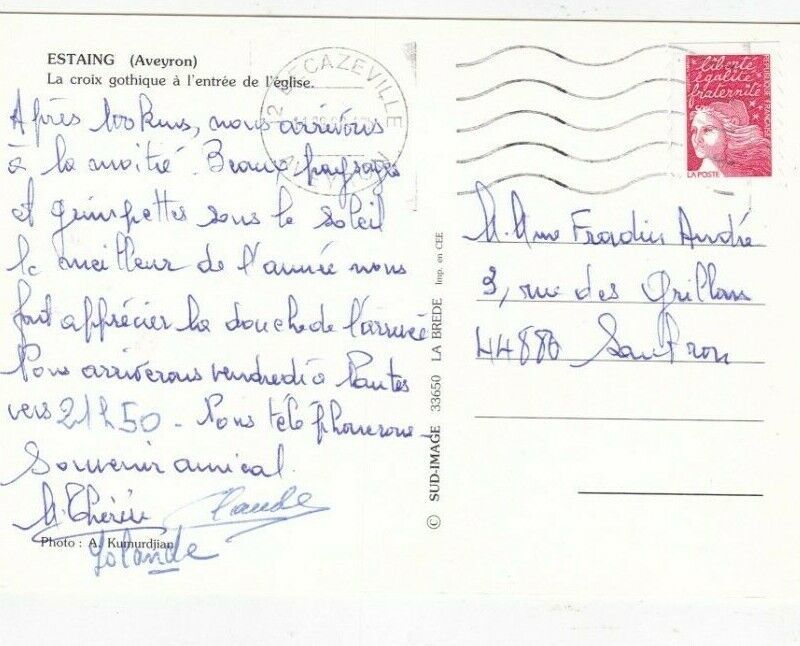 ESTAING (Aveyron)
La croix gothique à l'entrée de l'église.
Après 100 kms, nous arrivons
à la moitié. Beaux paysages
et grimpettes sous le soleil
le meilleur de l'année nous
fait apprécier la douche de l'arrivée
Nous arriverons vendredi à Nantes
vers 21h50. Nous téléphonerons
Souvenir amical
M. Thérèse Claude
Yolande
Photo : A. Kumurdjian
© SUD-IMAGE 33650 LA BREDE Imp. en CEE
DECAZEVILLE
liberté
égalité
fraternité
REPUBLIQUE FRANÇAISE
LA POSTE
M. Mme Fradin André
9, rue des Grillons
44880 Sautron